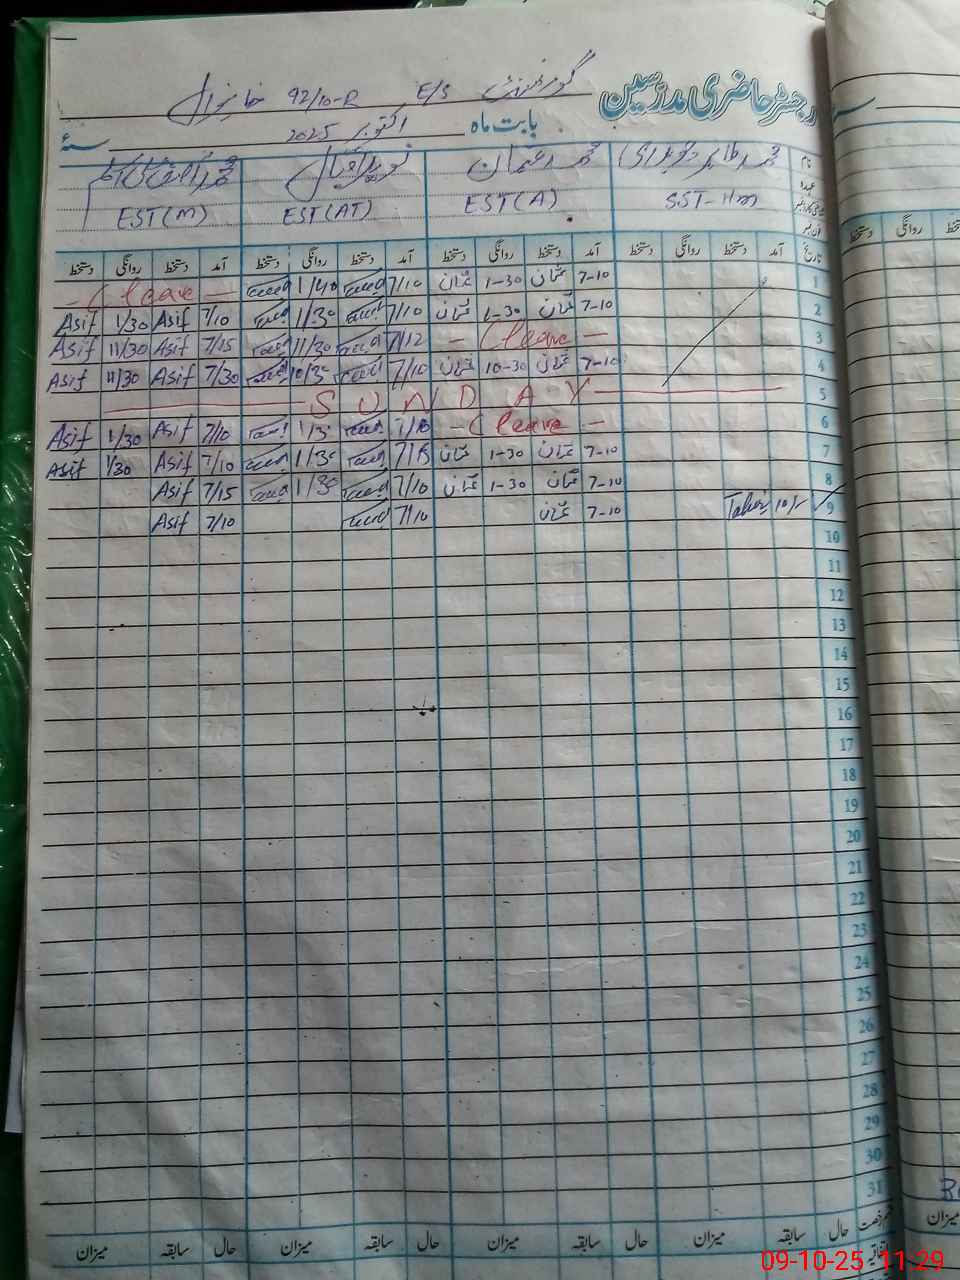 رجسٹر حاضری مدرسین
گورنمنٹ E/S 92/10-R خانیوال
بابت ماہ اکتوبر 2025 سنۂ
نام محمد طاہر چوہدری محمد عثمان نوید اقبال محمد آصف
عہدہ SST-HM EST(A) EST(AT) EST(M)
تاریخ آمد دستخط روانگی دستخط آمد دستخط روانگی دستخط آمد دستخط روانگی دستخط آمد دستخط روانگی دستخط
1 7-10 عثمان 1-30 عثمان 7/10 1/40 - (leave -
2 7-10 عثمان 1-30 عثمان 7/10 1/30 7/10 Asif 1/30 Asif
3 - (leave - 7/12 11/30 7/15 Asif 11/30 Asif
4 7-10 عثمان 10-30 عثمان 7/10 10/30 7/30 Asif 11/30 Asif
5 SUNDAY
6 - (leave - 7/10 1/30 7/10 Asif 1/30 Asif
7 7-10 عثمان 1-30 عثمان 1/30 7/10 Asif 1/30 Asif
8 7-10 عثمان 1-30 عثمان 7/10 1/30 7/15 Asif
9 Tahir 7-10 عثمان 7/10 7/10 Asif
10
11
12
13
14
15
16
17
18
19
20
21
22
23
24
25
26
27
28
29
30
31
حال سابقہ میزان حال سابقہ میزان حال سابقہ میزان حال سابقہ میزان
09-10-25 11:29